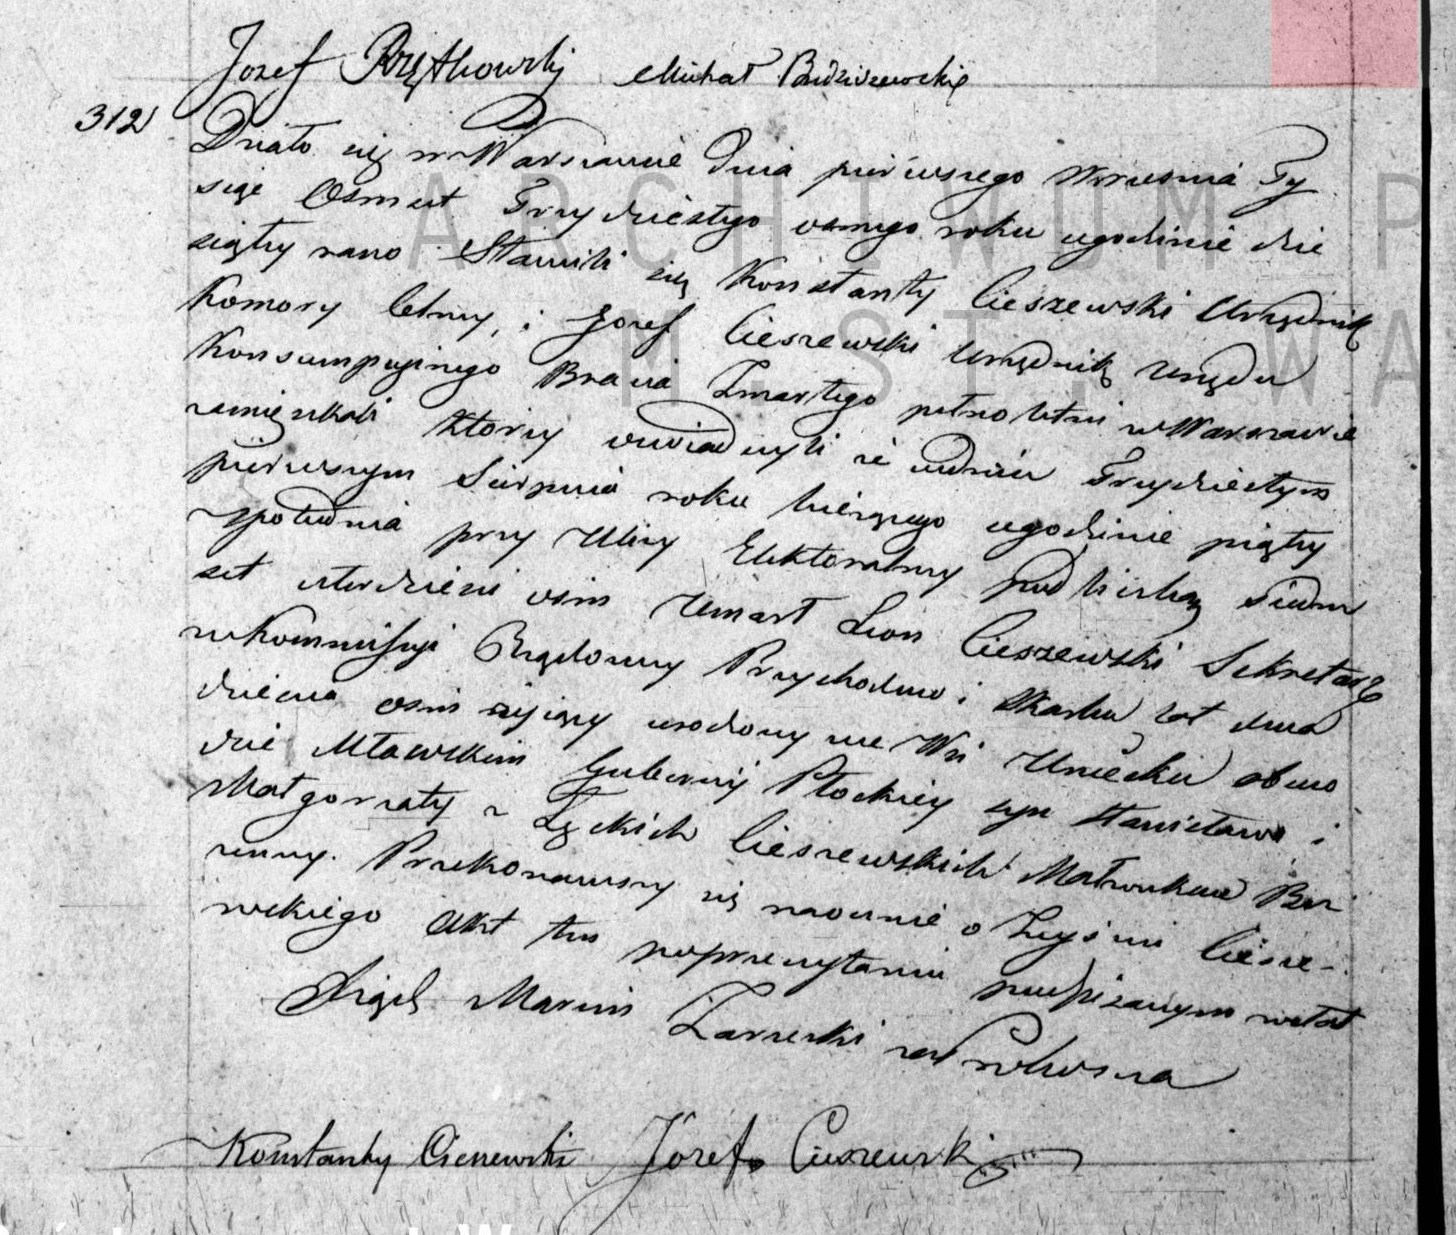 Jozef Rzętkowski Michał Budziszewski
312 Działo się w Warszawie Dnia pierwszego Września Ty
siąc Osmset Trzydziestego osmego roku o godzinie dzie
siątey rano Stawili się Konstanty Cieszewski Urzędnik
Komory Celney, i Jozef Cieszewski Urzędnik Urzędu
Konsumpcyjnego Bracia Zmarłego pełnoletni w Warszawie
zamięszkali ktorzy oswiadczyli że w dniu Trzydziestym
pierwszym Sierpnia roku bieżącego o godzinie piątey
z południa przy Ulicy Elektoralney pod liczbą siedm
set czterdzieści ośm Umarł Leon Cieszewski Sekretarz
w Kommissyi Rządowey Przychodow i Skarbu lat dwa
dzieścia ośm żyjący urodzony we Wsi Uniecku obwo
dzie Mławskim Gubernij Płockiey syn Stanisława i
Małgorzaty z Łęckich Cieszewskich Małżonkow Bez
zenny. Przekonawszy się naocznie o Zejściu Ciesze-
wskiego Akt ten po przeczytaniu podpisanym został
Xiądz Marcin Zarzecki za Proboszcza
Konstanty Cieszewski Jozef Cieszewski
ARCHIWUM P
M. ST. WA